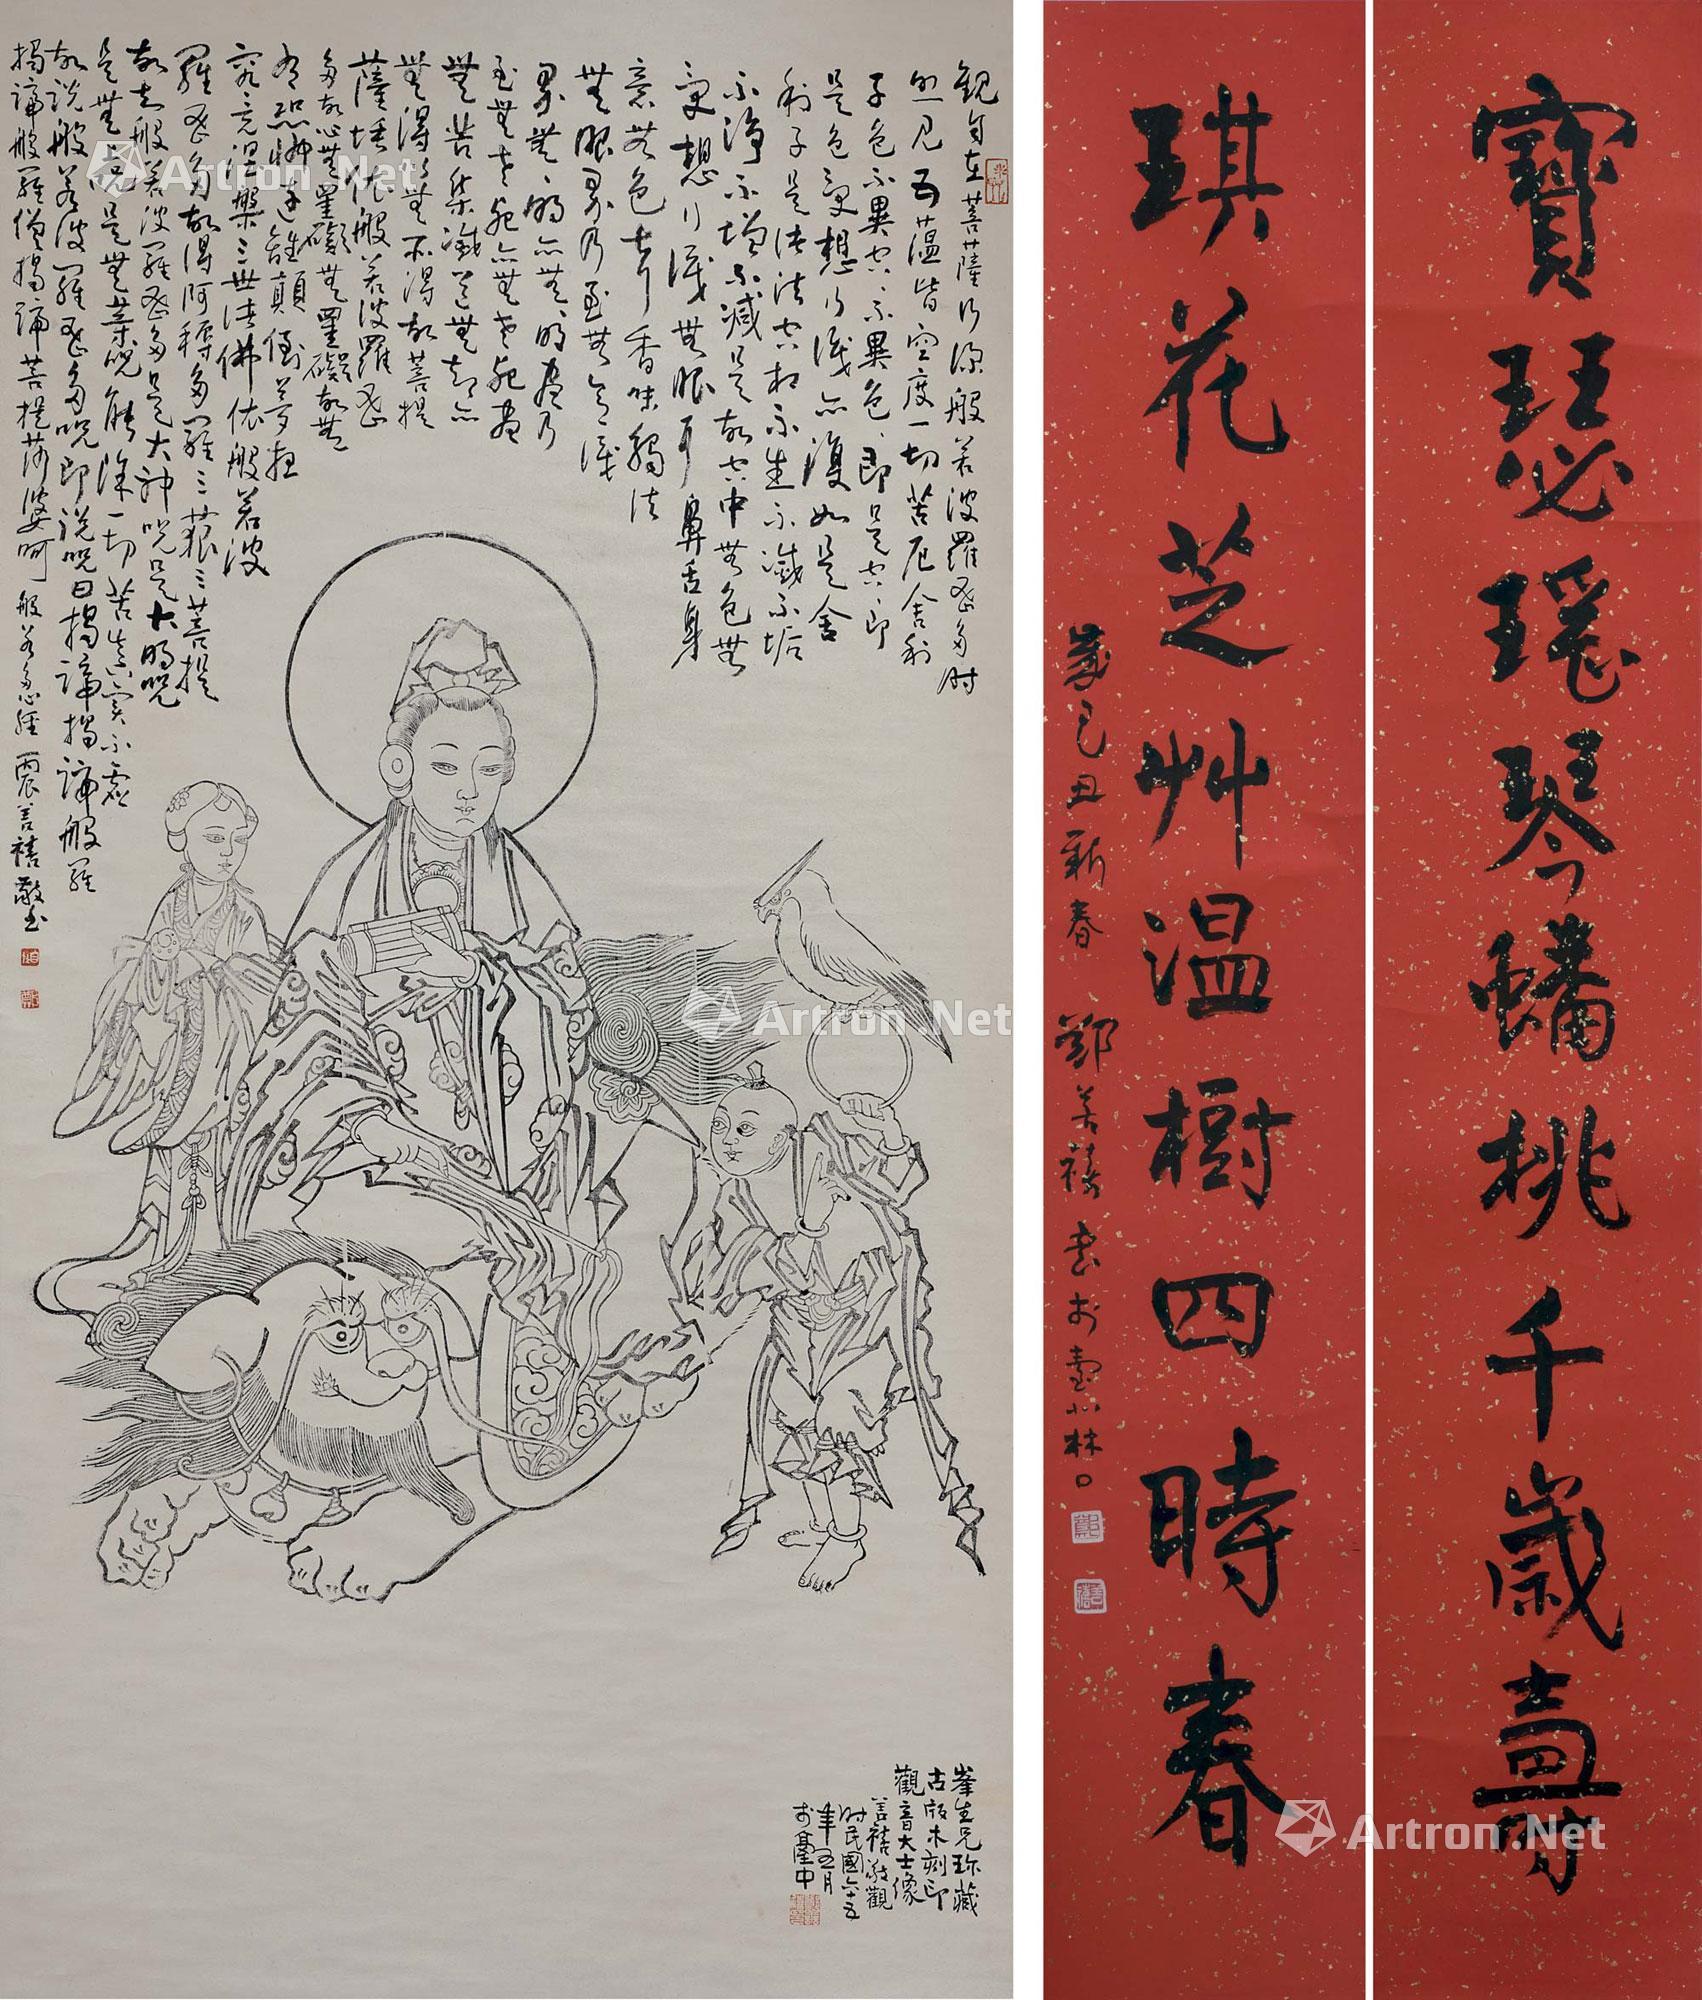 觀自在菩薩行深般若波羅蜜多時
照見五蘊皆空度一切苦厄舍利
子色不異空〻不異色〻即是空〻即
是色受想行識亦復如是舍
利子是諸法空相不生不滅不垢
不淨不增不減是故空中無色無
受想行識無眼耳鼻舌身
意無色聲香味觸法
無眼界乃至無意識
界無〻明亦無〻明盡乃
至無老死亦無老死盡
無苦集滅道無智亦
無得以無所得故菩提
薩埵依般若波羅蜜
多故心無罣礙無罣礙故無
有恐怖遠離顛倒夢想
究竟涅槃三世諸佛依般若波
羅蜜多故得阿耨多羅三藐三菩提
故知般若波羅蜜多是大神咒是大明咒
是無上咒是無等咒能除一切苦真實不虛
故說般若波羅蜜多咒即說咒曰揭諦揭諦般羅
揭諦般羅僧揭諦菩提莎婆呵 般若多心經 善禧敬書
峯生兄珍藏
古版木刻印
觀音大士像
善禧敬觀
時民國六十五
年五月
於臺中
寶瑟瑤琴蟠桃千歲壽
琪花芝艸溫樹四時春
歲己丑新春 鄭善禧書於臺北林口
Artron.Net
Artron.Net
Artron.Net